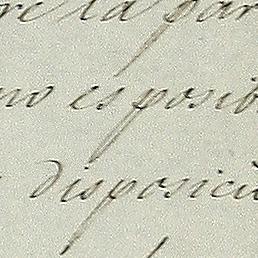 re la par
no es posib
disposició